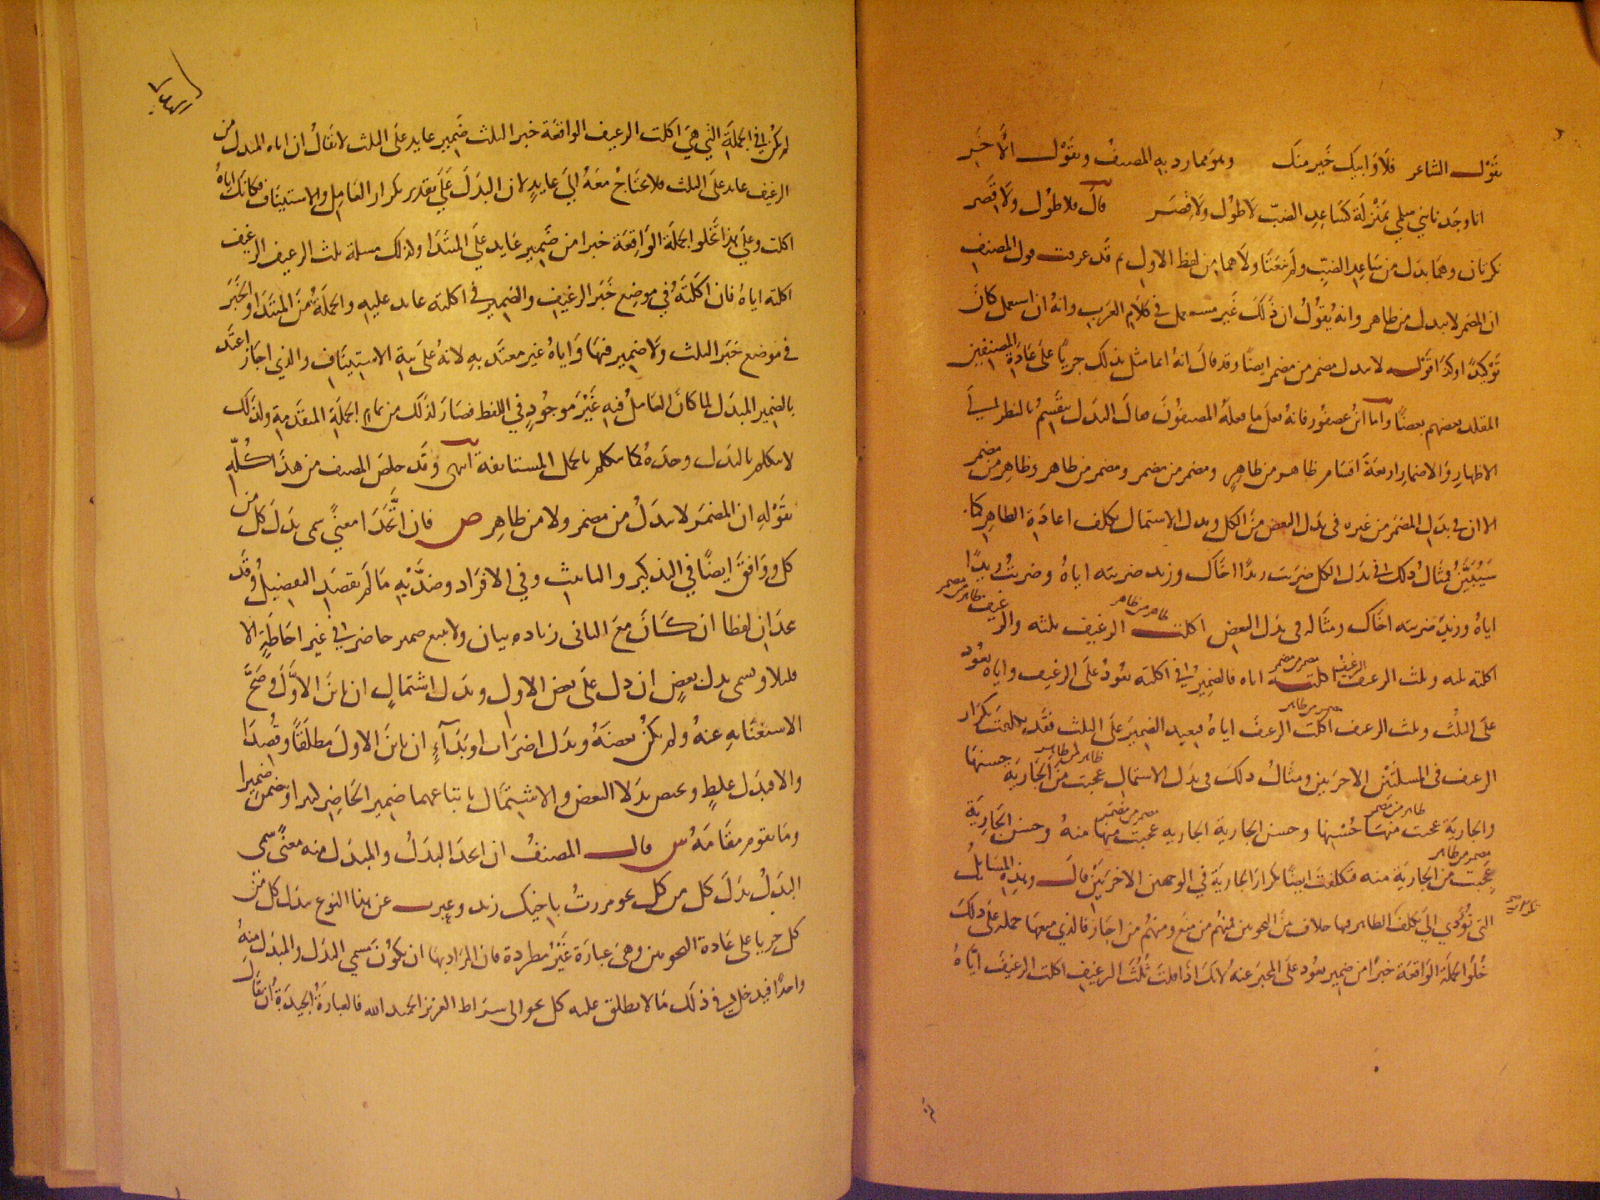 بقول الشاعر فلا وابيك خير منك وهو مما رد به المصنف وبقول الآخر
انا وجدنا بني سلمى بمنزلة كساعد الضب لا طول ولا قصر قال فلا طول ولا قصر
نكرتان وهما بدل من ساعد الضب ولم ينعتا ولا هما من لفظ الاول ثم قد عرفت قول المصنف
ان المضمر لا يبدل من ظاهر وانه يقول ان ذلك غير مستعمل في كلام العرب وانه ان استعمل كان
توكيدا وكذا قوله لا يبدل مضمر من مضمر ايضا وقد قال انه انما مثل بذلك جريا على عادة المصنفين
المقلد بعضهم بعضا واما ابن عصفور فانه فعل ما فعله المصنفون فقال البدل ينقسم بالنظر الى
الاظهار والاضمار اربعة اقسام ظاهر من ظاهر ومضمر من مضمر ومضمر من ظاهر وظاهر من مضمر
الا ان في بدل المضمر من غيره في بدل البعض من الكل وبدل الاشتمال تكلف اعادة الظاهر كما
سيبين فمثال ذلك في بدل الكل ضربت زيدا اخاك وزيد ضربته اياه وضربت زيدا
اياه وزيد ضربته اخاك ومثاله في بدل البعض اكلت الرغيف ثلثه والرغيف
ظاهر من ظاهر
ظاهر من مضمر
اكلته ثلثه وثلث الرغيف الرغيف اكلته اياه فالضمير في اكلته يعود على الرغيف واياه يعود
مضمر من مضمر
على الثلث وثلث الرغيف اكلت الرغيف اياه فيعيد الضمير على الثلث فقد تكلفت تكرار
مضمر من ظاهر
الرغيف في المسئلتين الاخرتين ومثال ذلك في بدل الاشتمال عجبت من الجارية حسنها
ظاهر من ظاهر
والجارية عجبت منها حسنها وحسن الجارية الجارية عجبت منها منه وحسن الجارية
ظاهر من مضمر
مضمر من مضمر
عجبت من الجارية منه فتكلفت ايضا تكرار الجارية في الوجهين الاخرين قال وهذه المسايل
مضمر من ظاهر
التي تؤدي الى تكلف الظاهر فيها خلاف من النحويين فمنهم من منع ومنهم من اجاز فالذي منعها حمله على ذلك
خلو الجملة الواقعة خبرا من ضمير يعود على المخبر عنه لانك اذا قلت ثلث الرغيف اكلت الرغيف اياه
لم يكن في الجملة التي هي اكلت الرغيف الواقعة خبر الثلث ضمير عايد على الثلث لا يقال ان اياه المبدل من
الرغيف عايد على الثلث فلا يحتاج معه الى عايد لان البدل على تقدير تكرار العامل والاستيناف فكانك اياه
اكلت وعلى هذا تخلو الجملة الواقعة خبرا من ضمير عايد على المبتدا وكذلك مسلة ثلث الرغيف الرغيف
اكلته اياه فان اكلته في موضع خبر الرغيف والضمير في اكلته عايد عليه والجملة من المبتدا والخبر
في موضع خبر الثلث ولا ضمير فيها واياه غير معتد به لانه على نية الاستيناف والذي اجاز اعتد
بالضمير المبدل لما كان العامل فيه غير موجود في اللفظ فصار لذلك من تمام الجملة المتقدمة ولذلك
لا يتكلم بالبدل وحده كما يتكلم بالجمل المستانفة انتهى وقد خلص المصنف من هذا كله
بقوله ان المضمر لا يبدل من مضمر ولا من ظاهر ص فان اتحدا معنى سمي بدل كل من
كل ووافق ايضا في التذكير والتانيث وفي الافراد وضديه ما لم يقصد التفصيل وقد
يتحدان لفظا ان كان مع الثاني زيادة بيان ولا يتبع ضمير حاضر في غير احاطة الا
قليلا ويسمى بدل بعض ان دل على بعض الاول وبدل اشتمال ان باين الاول وصح
الاستغنا به عنه ولم يكن بعضه وبدل اضراب او بداء ان باين الاول مطلقا وقصدا
والا فبدل غلط ويختص بدلا البعض والاشتمال باتباعهما ضمير الحاضر كثيرا وتضمن ضميرا
وما يقوم مقامه س قال المصنف ان اتحد البدل والمبدل منه معنى سمي
البدل بدل كل من كل نحو مررت باخيك زيد وعبرت عن هذا النوع ببدل كل من
كل جريا على عادة النحويين وهي عبارة غير مطردة فان المراد بها ان يكون مسمى البدل والمبدل منه
واحدا فيدخل في ذلك ما لا يطلق عليه كل نحو الى سراط العزيز الحميد الله فالعبارة الجيدة ان يقال